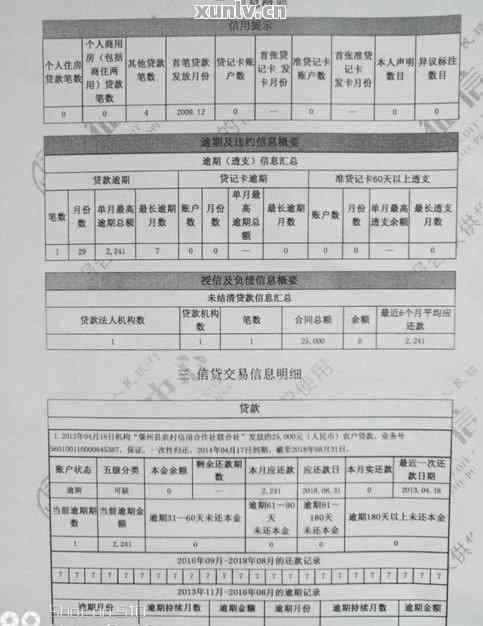 xuniv.cn
信用提示
个人住房贷款笔数 个人商用房（包括商住两用）贷款笔数 其他贷款笔数 首笔贷款发放月份 贷记卡账户数 首张贷记卡发卡月份 准贷记卡账户数 首张准贷记卡发卡月份 本人声明数目 异议标注数目
0 0 4 2009.12 0 — 0 — 0 0
逾期及违约信息概要
逾期（透支）信息汇总
贷款逾期 贷记卡逾期 准贷记卡60天以上透支
笔数 月份数 单月最高逾期总额 最长逾期月数 账户数 月份数 单月最高逾期总额 最长逾期月数 账户数 月份数 单月最高透支余额 最长透支月数
1 29 2,241 7 0 0 — 0 0 0 — 0
授信及负债信息概要
未结清贷款信息汇总
贷款法人机构数 贷款机构数 笔数 合同总额 余额 最近6个月平均应还款
1 1 1 25,000 0 2,241
三 信贷交易信息明细
贷款
账户状态 五级分类 本金余额 剩余还款期数 本月应还款 应还款日 本月实还款 最近一次还款日期
逾期 可疑 0 — 2,241 2018.08.31 0 2013.04.18
当前逾期期数 当前逾期金额 逾期31—60天未还本金 逾期61—90天未还本金 逾期91—180天未还本金 逾期180天以上未还本金
1 2,241 0 0 0 0
2016年09月-2018年08月的还款记录
7 7 7 7 7 7 7 7 7 7 7 7 7 7 7 7 7 7 7 7 7 7 7 7
2013年11月-2016年08月的逾期记录
逾期月份 逾期持续月数 逾期金额 逾期月份 逾期持续月数 逾期金额